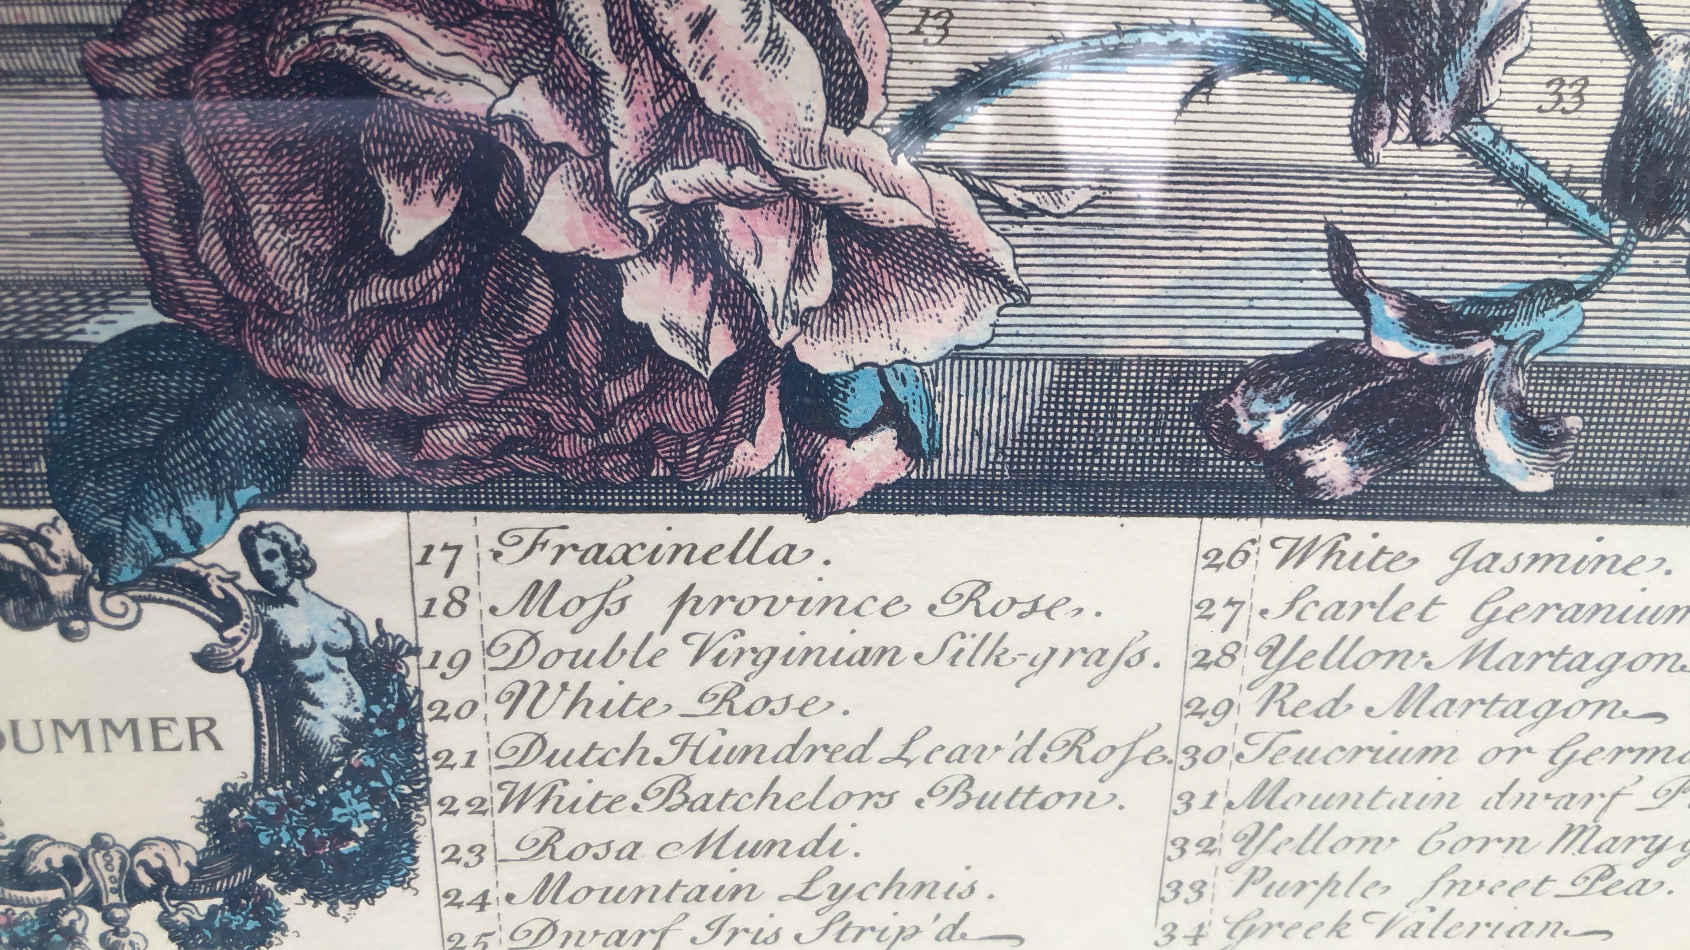 13
33
SUMMER
17 Fraxinella.
18 Moſs province Rose.
19 Double Virginian Silk-graſs.
20 White Rose.
21 Dutch Hundred Leav'd Roſe.
22 White Batchelors Button.
23 Rosa Mundi.
24 Mountain Lychnis.
25 Dwarf Iris Strip'd
26 White Jasmine.
27 Scarlet Geranium
28 Yellow Martagon
29 Red Martagon
30 Teucrium or Germ
31 Mountain dwarf P
32 Yellow Corn Mary
33 Purple sweet Pea.
34 Greek Valerian